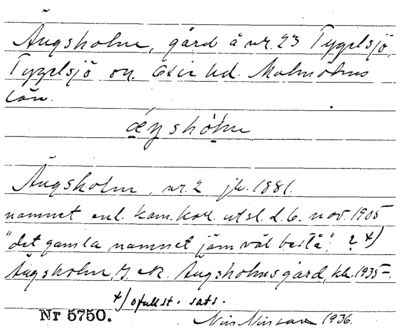 Ängsholm, gård å nr. 23 Tygelsjö,
Tygelsjö sn. Oxie hd. Malmöhus
län.
ä̀ŋshȯ́lm
Ängsholm, nr. 2 jb. 1881.
namnet enl. kam. koll. utsl. d. 6. nov. 1905
"det gamla namnet jämväl bestå". ? x)
Ängsholm, G. M. Ängsholmsgård, tk. 1935-
x) ofullst. sats.
Nr 5750.
1936.